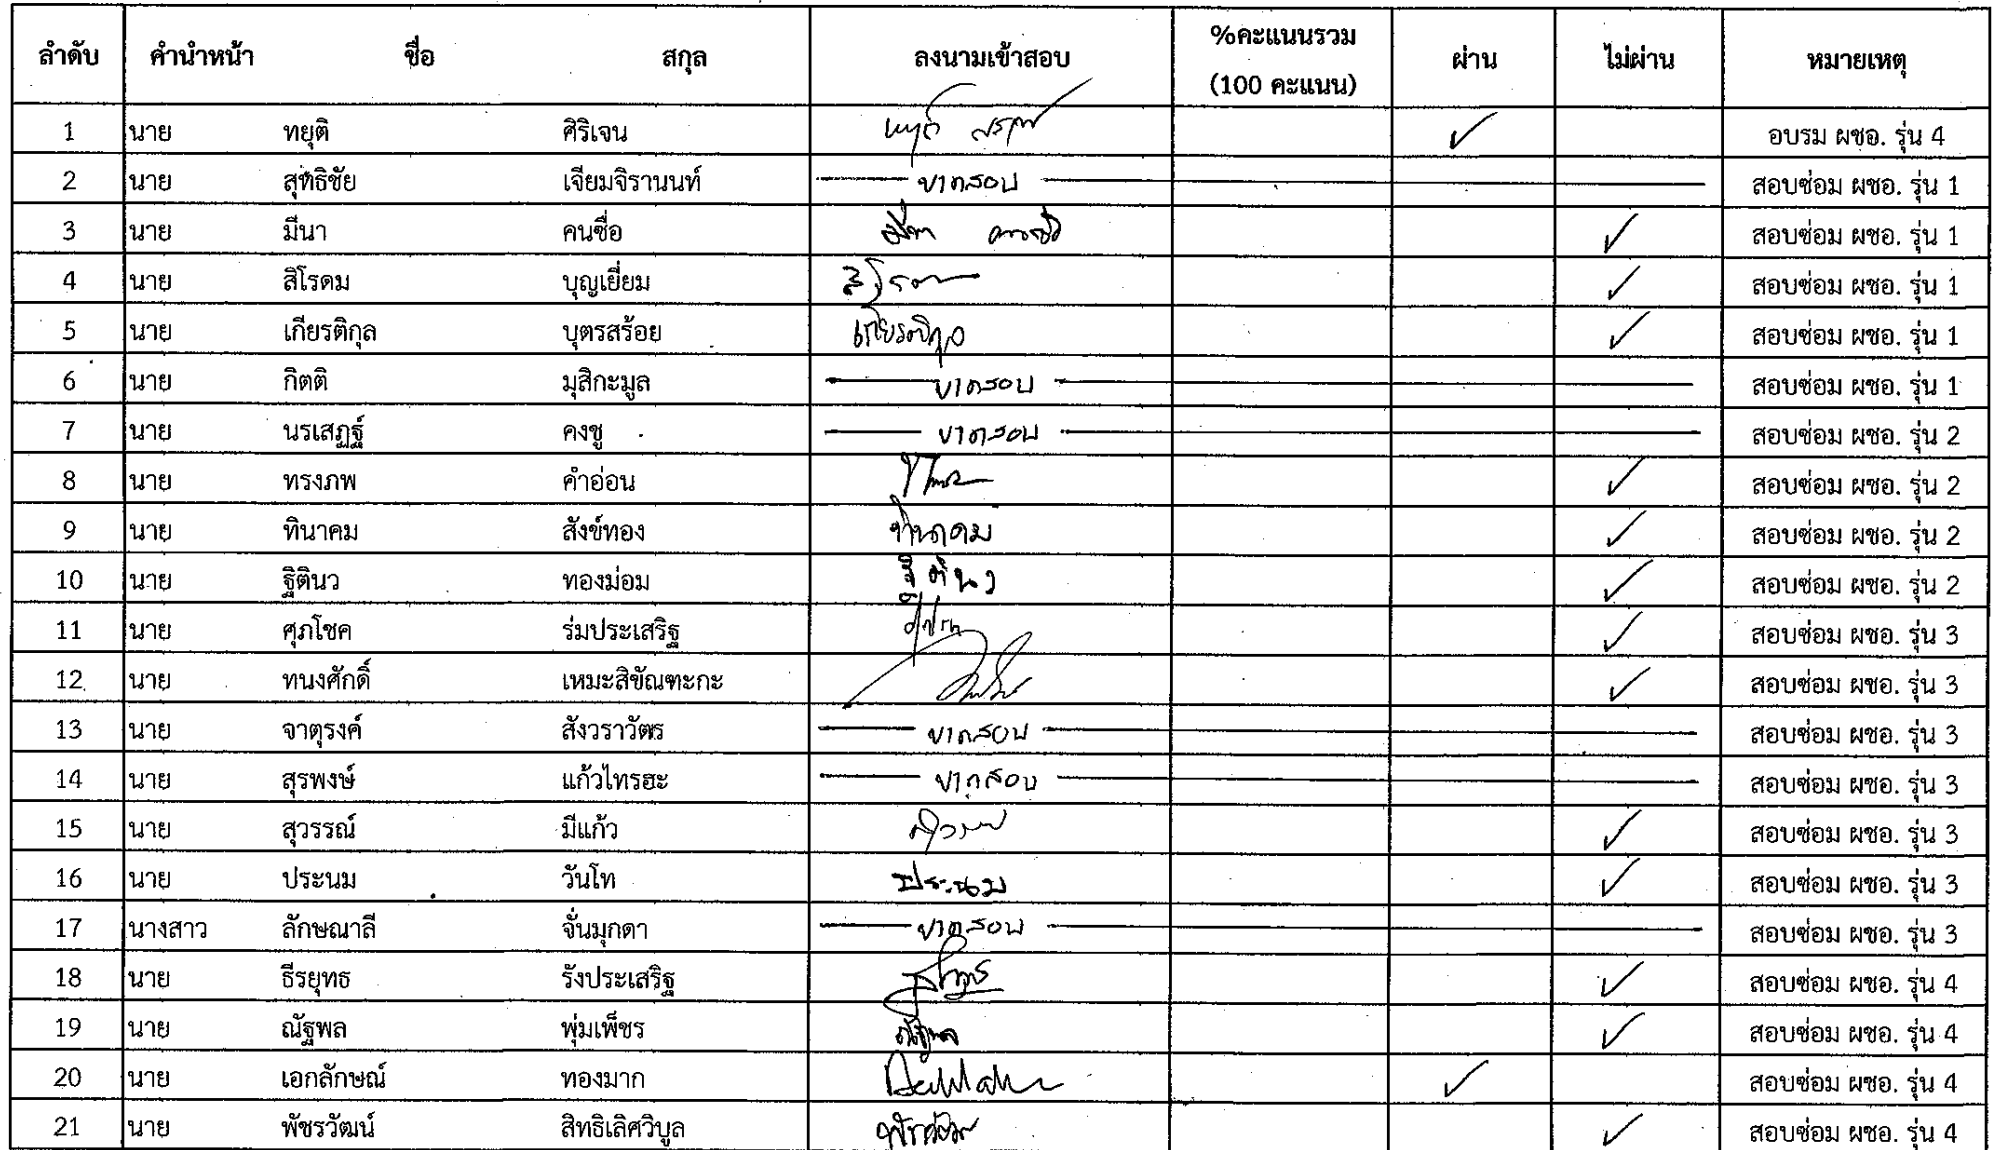 ลำดับ คำนำหน้า ชื่อ สกุล ลงนามเข้าสอบ %คะแนนรวม (100 คะแนน) ผ่าน ไม่ผ่าน หมายเหตุ
1 นาย ทยุติ ศิริเจน ✓ อบรม ผชอ. รุ่น 4
2 นาย สุทธิชัย เจียมจิรานนท์ ขาดสอบ สอบซ่อม ผชอ. รุ่น 1
3 นาย มีนา คนซื่อ มีนา คนซื่อ ✓ สอบซ่อม ผชอ. รุ่น 1
4 นาย สิโรดม บุญเยี่ยม ✓ สอบซ่อม ผชอ. รุ่น 1
5 นาย เกียรติกุล บุตรสร้อย เกียรติกุล ✓ สอบซ่อม ผชอ. รุ่น 1
6 นาย กิตติ มุสิกะมูล ขาดสอบ สอบซ่อม ผชอ. รุ่น 1
7 นาย นรเสฏฐ์ คงชู ขาดสอบ สอบซ่อม ผชอ. รุ่น 2
8 นาย ทรงภพ คำอ่อน ✓ สอบซ่อม ผชอ. รุ่น 2
9 นาย ทินาคม สังข์ทอง ทินาคม ✓ สอบซ่อม ผชอ. รุ่น 2
10 นาย ฐิตินว ทองม่อม ฐิตินว ✓ สอบซ่อม ผชอ. รุ่น 2
11 นาย ศุภโชค ร่มประเสริฐ ✓ สอบซ่อม ผชอ. รุ่น 3
12 นาย ทนงศักดิ์ เหมะสิขัณฑะกะ ✓ สอบซ่อม ผชอ. รุ่น 3
13 นาย จาตุรงค์ สังวราวัตร ขาดสอบ สอบซ่อม ผชอ. รุ่น 3
14 นาย สุรพงษ์ แก้วไทรฮะ ขาดสอบ สอบซ่อม ผชอ. รุ่น 3
15 นาย สุวรรณ์ มีแก้ว ✓ สอบซ่อม ผชอ. รุ่น 3
16 นาย ประนม วันโท ประนม ✓ สอบซ่อม ผชอ. รุ่น 3
17 นางสาว ลักษณาลี จั่นมุกดา ขาดสอบ สอบซ่อม ผชอ. รุ่น 3
18 นาย ธีรยุทธ รังประเสริฐ ✓ สอบซ่อม ผชอ. รุ่น 4
19 นาย ณัฐพล พุ่มเพ็ชร ณัฐพล ✓ สอบซ่อม ผชอ. รุ่น 4
20 นาย เอกลักษณ์ ทองมาก ✓ สอบซ่อม ผชอ. รุ่น 4
21 นาย พัชรวัฒน์ สิทธิเลิศวิบูล ✓ สอบซ่อม ผชอ. รุ่น 4